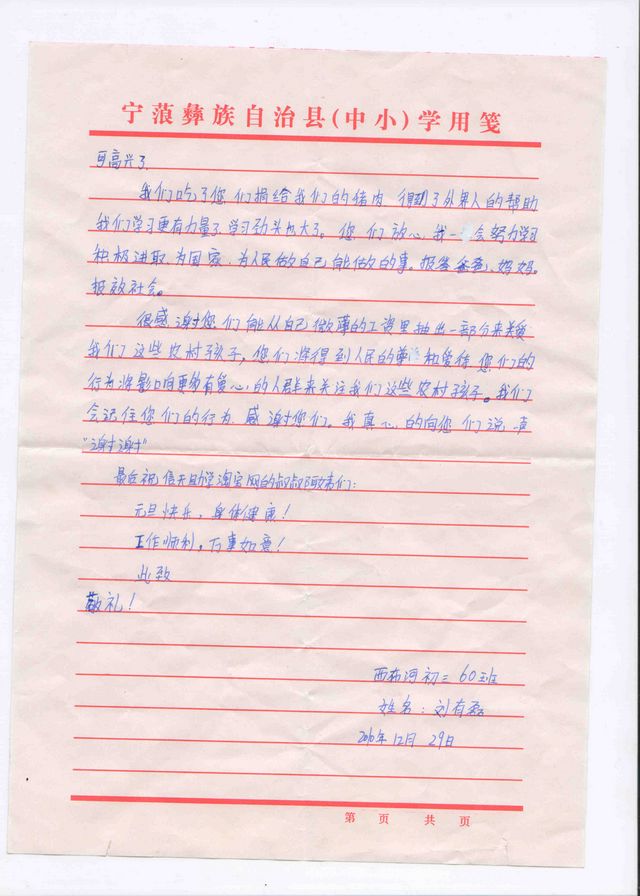 宁蒗彝族自治县(中小)学用笺
可高兴了.
我们吃了您们捐给我们的猪肉 得到了外界人的帮助
我们学习更有力量了学习劲头也大了。您们放心,我一会努力学习
积极进取为国家,为人民做自己能做的事。报答爸爸、妈妈。
报效社会。
很感谢您们能从自己微薄的工资里抽出一部分来关爱
我们这些农村孩子,您们深得到人民的尊 和爱待 您们的
行为深影响更多有爱心的人群来关注我们这些农村孩子。我们
会记住您们的行为.感谢您们。我真心的向您们说声
"谢谢"
最后祝信天助学淘宝网的叔叔阿姨们:
元旦快乐,身体健康!
工作师利,万事如意!
此致
敬礼!
西布河初二60班
姓名:刘有磊
2010年12月29日
第 页 共 页